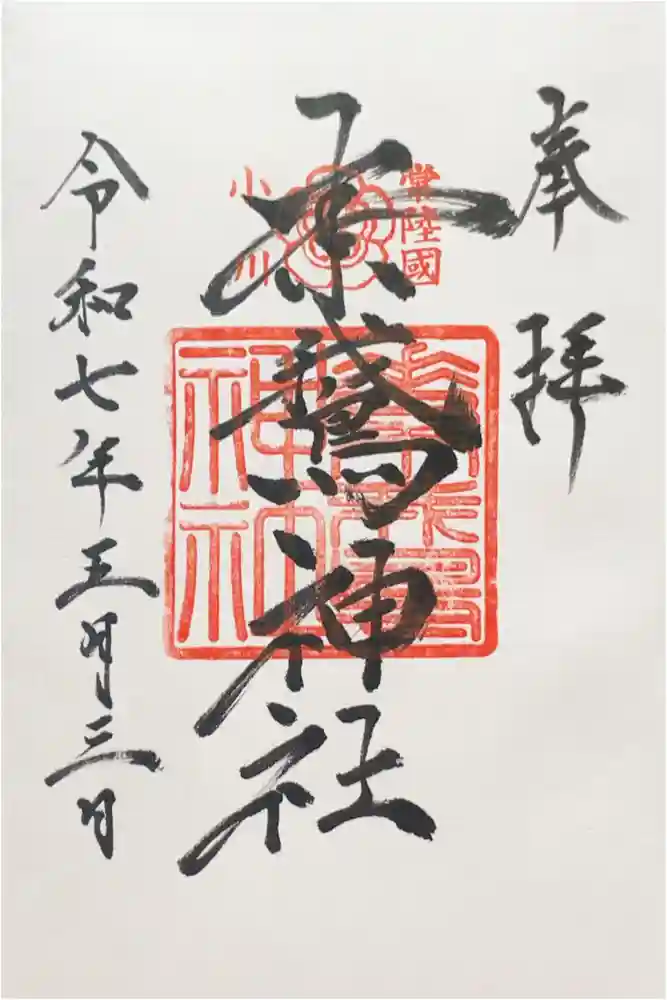 奉拝
常陸國
小川
素鵞神社
令和七年五月三日